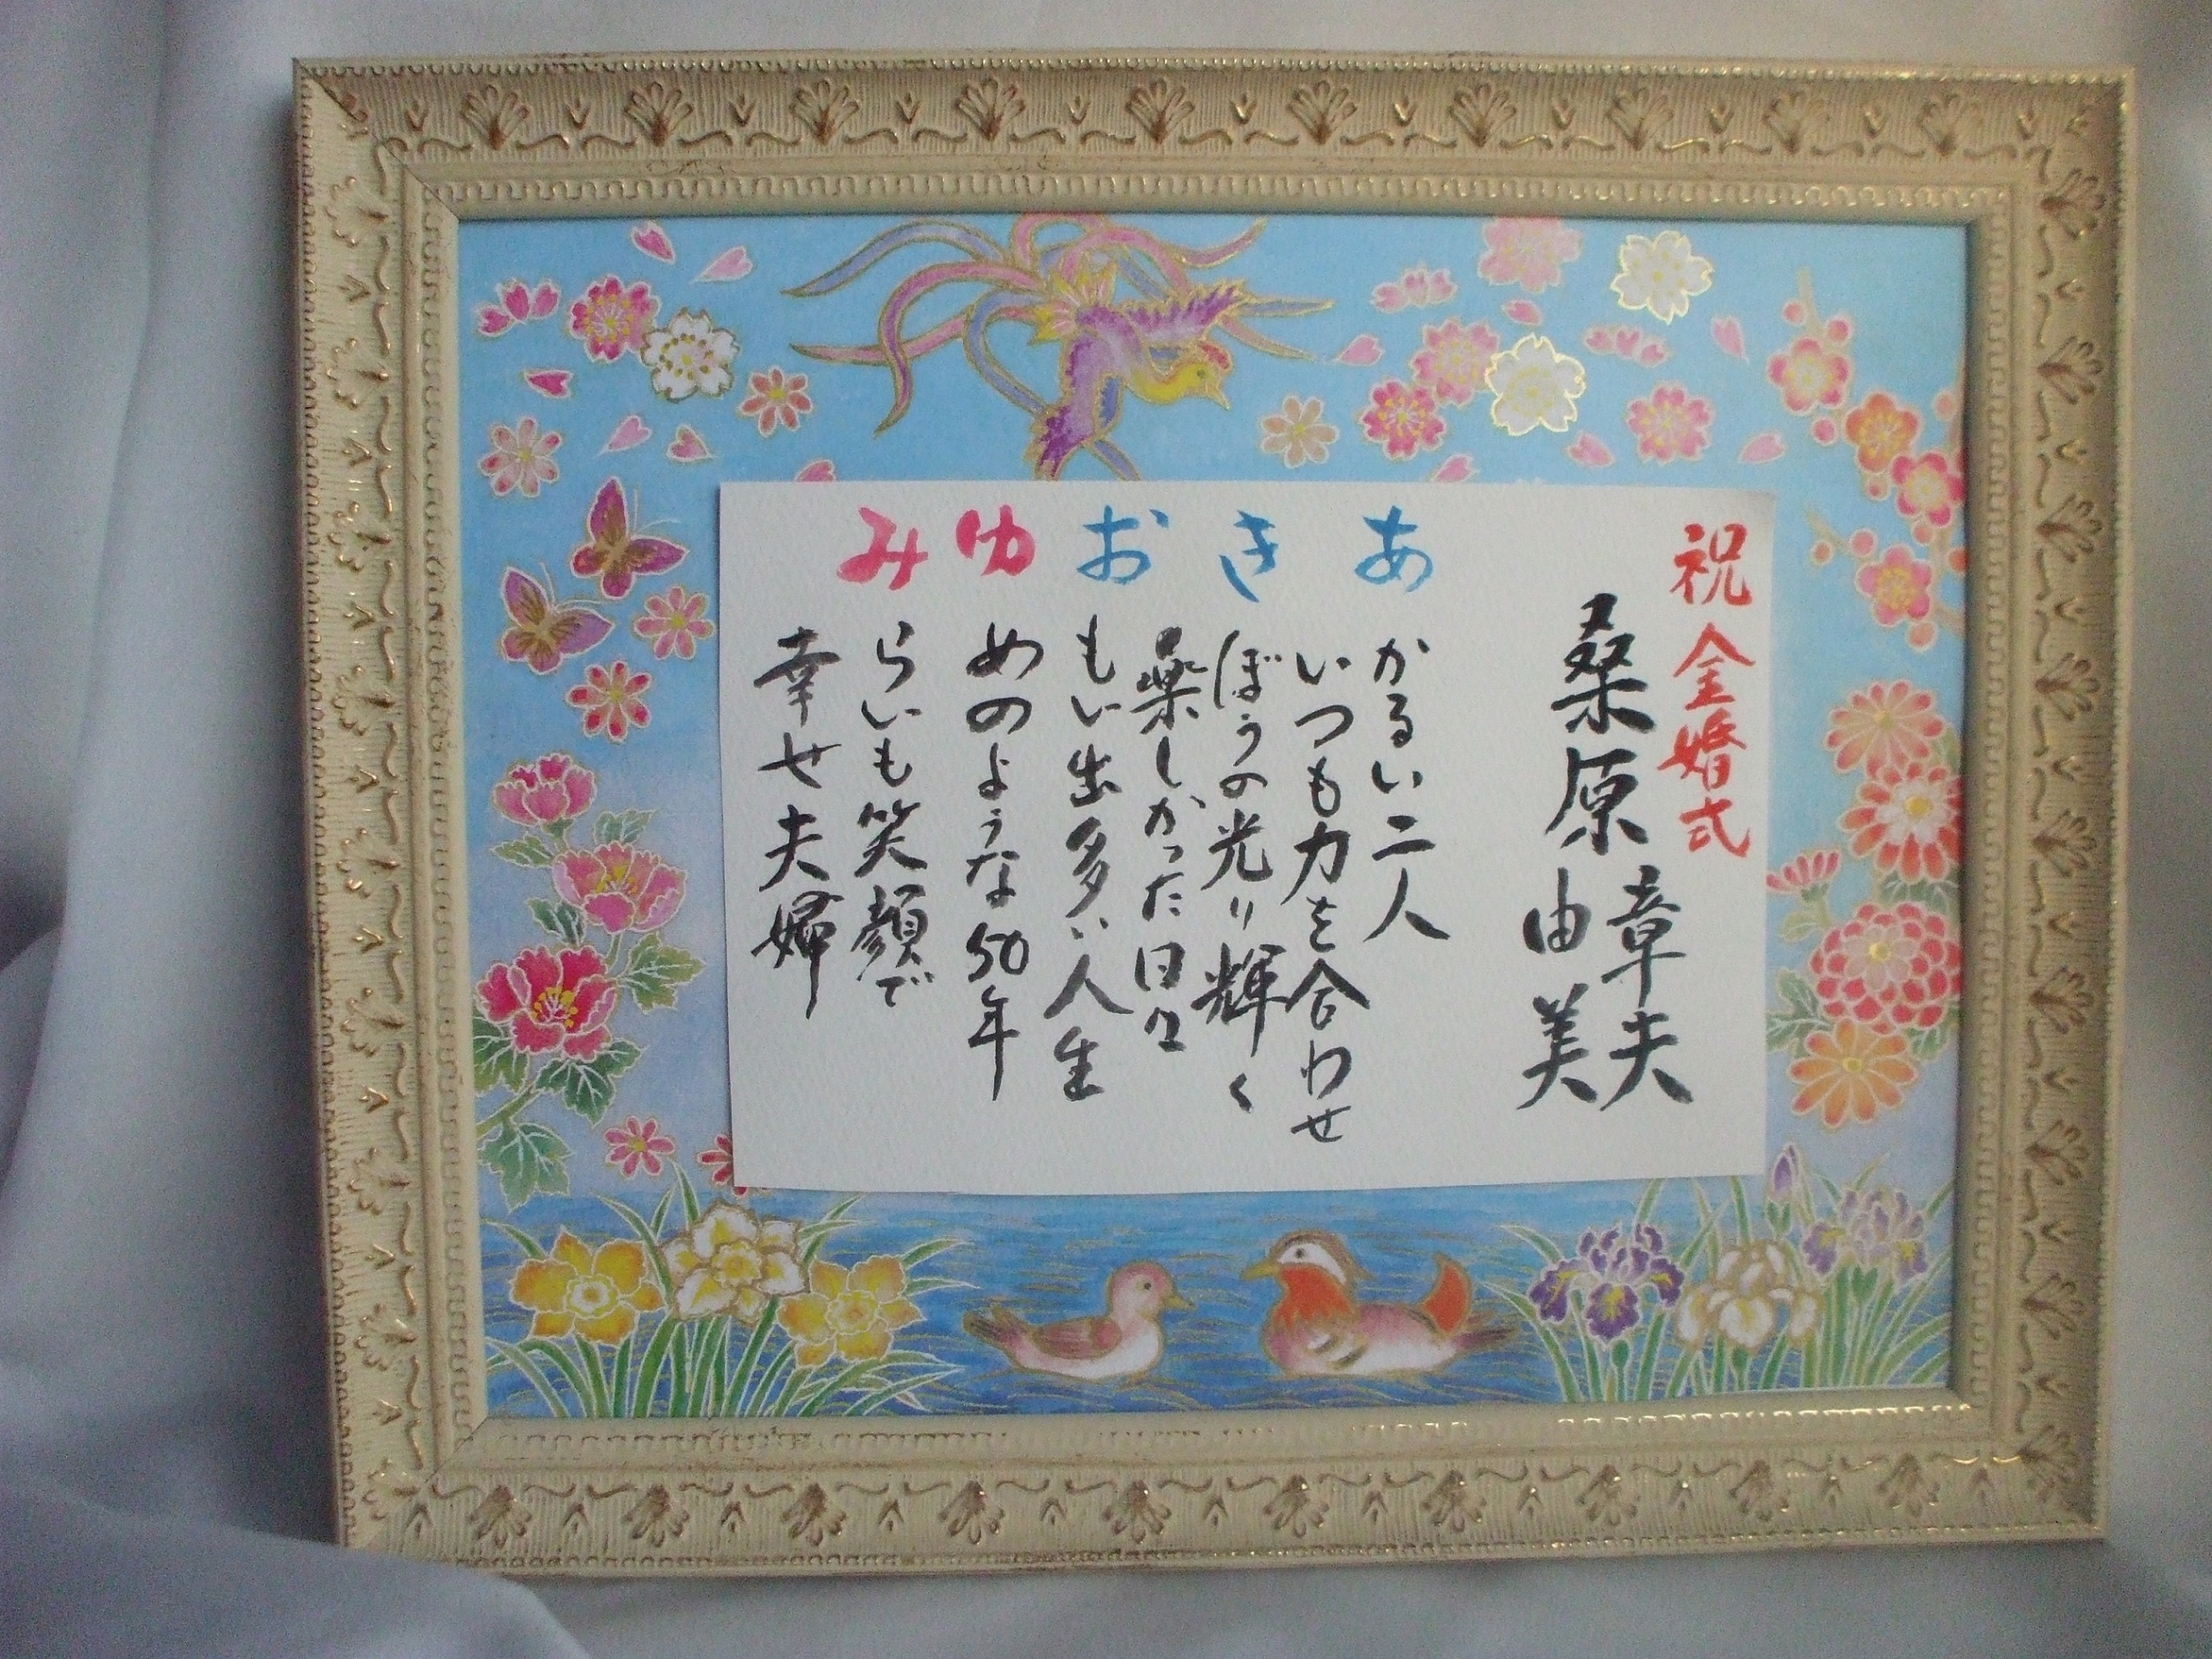 祝 金婚式
桑原 章夫
由美
あかるい二人
いつも力を合わせ
きぼうの光り輝く
楽しかった日々
おもい出多い人生
ゆめのような50年
みらいも笑顔で
幸せ夫婦